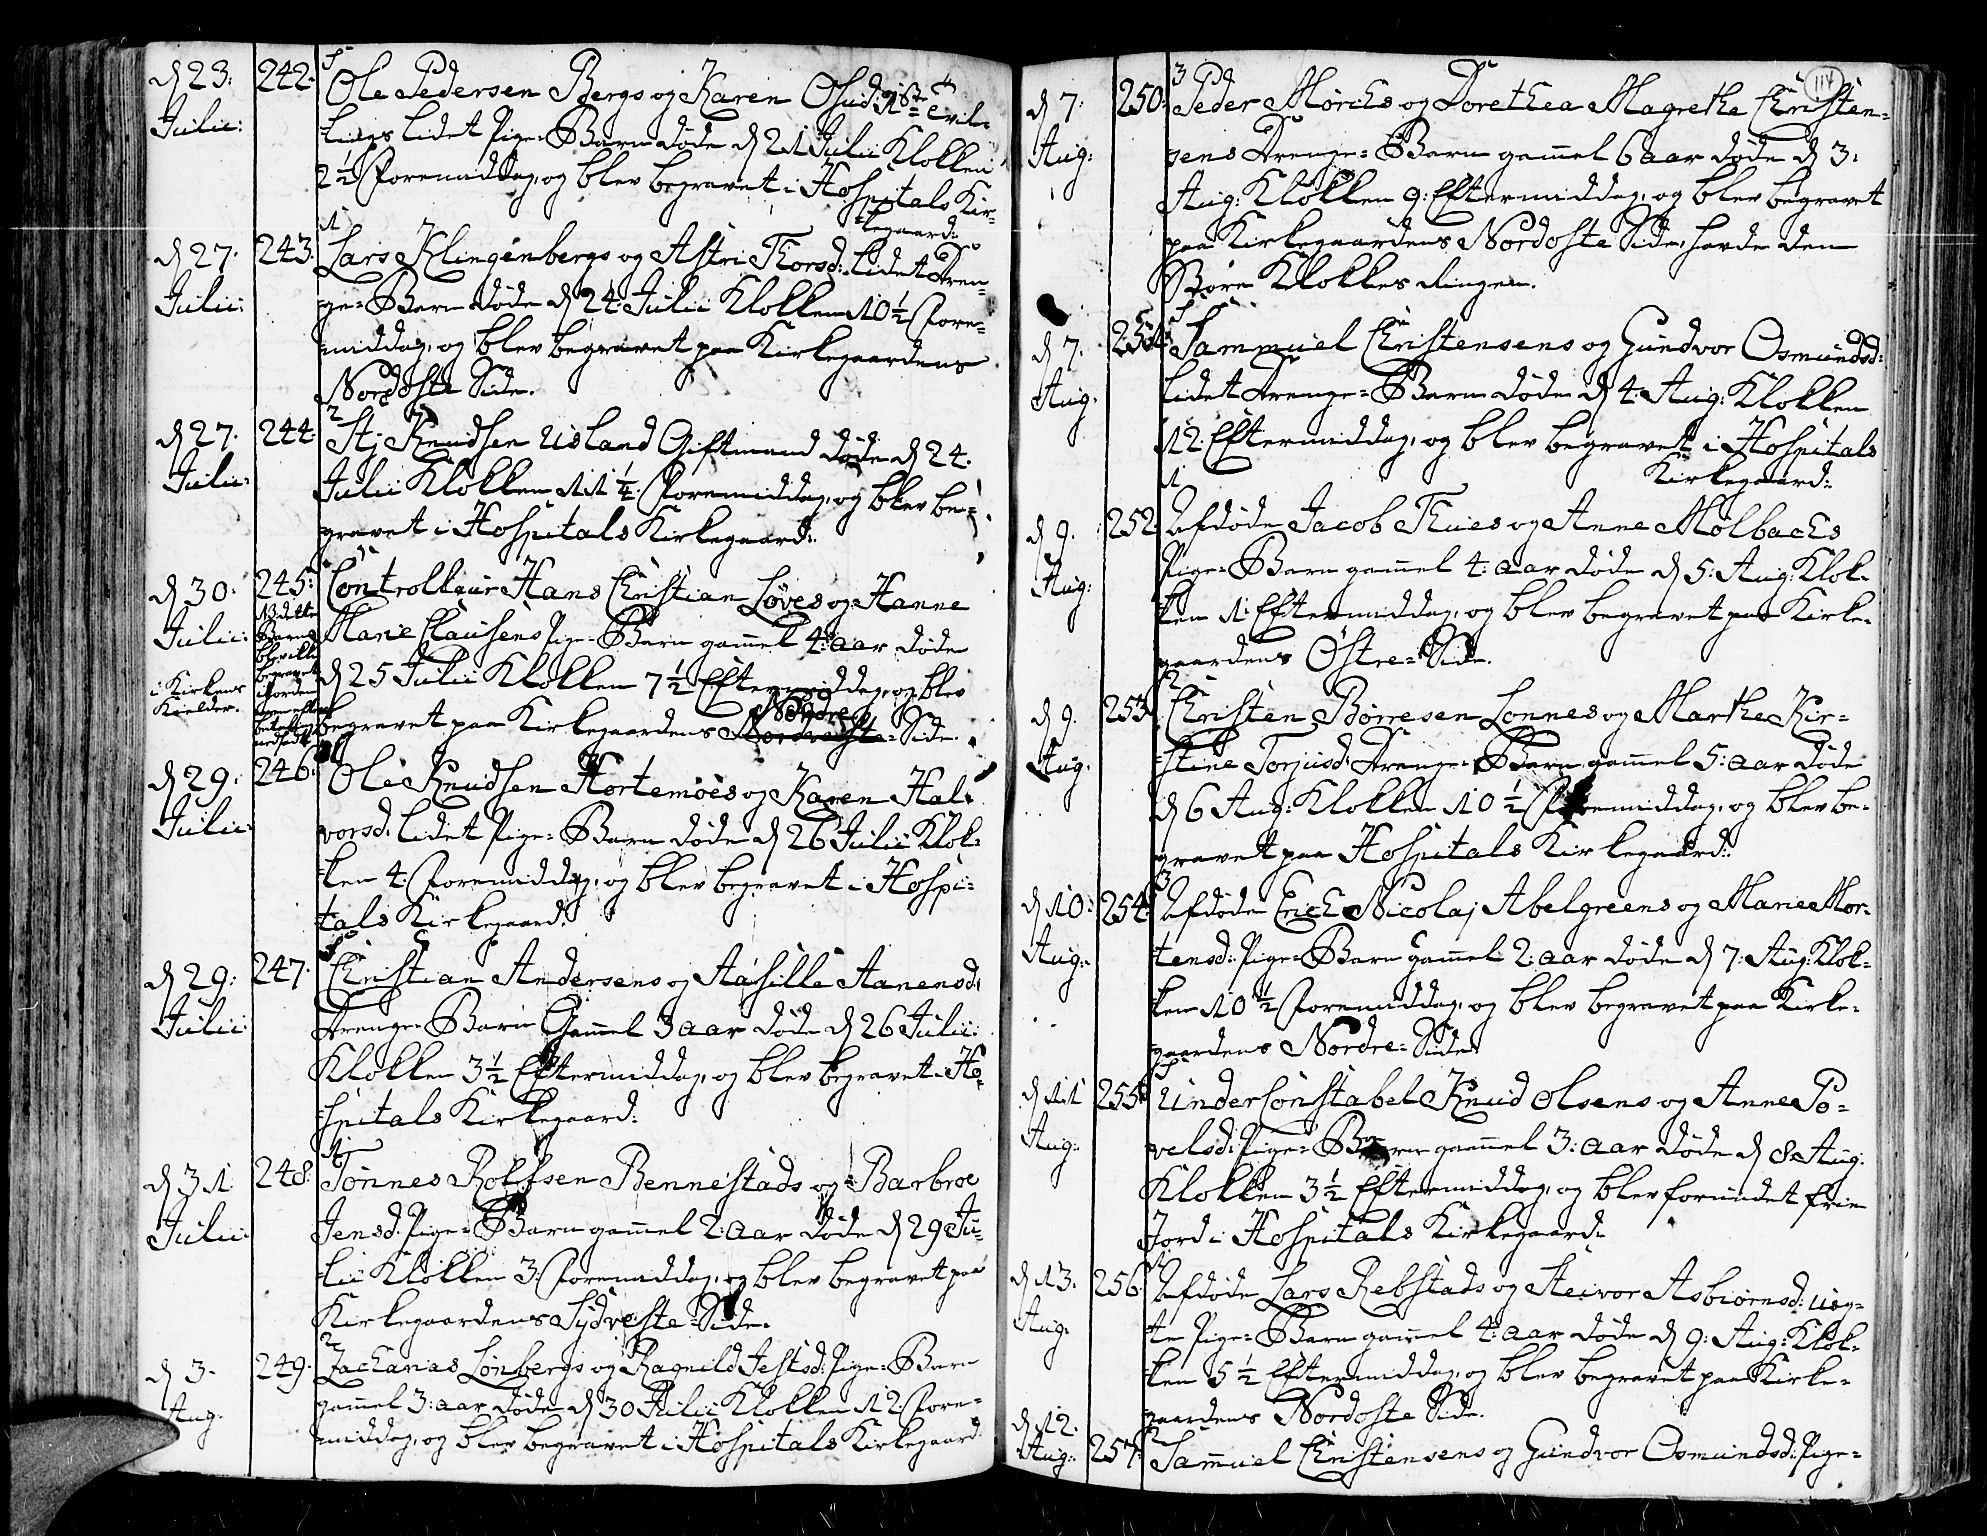 d 23: 242. Ole Pedersen Bergs og Karen Osuld:
Julii: lings lidet Pige-Barn døde d 21 Julii Klokken
2½ Formiddag, og blev begravet i Hospitals Kir-
kegaard:
d 27. 243. Lars Klingenbergs og Astri Thorsd: lidet Dren-
Julii: ge-Barn døde d 24 Julii Klokken 10½ For-
middag, og blev begravet paa Kirkegaardens
Nordoste Side.
d 27. 244. Knudsen Usland Giftmand døde d 24.
Julii: Julii Klokken 11¼. Formiddag, og blev be-
gravet i Hospitals Kirkegaard:
d 30. 245: Controlleur Hans Christian Løves og Hanne
Julii: Marie Clausens Pige-Barn gammel 4: aar døde
d 25 Julii Klokken 7½ Eftermiddag, og blev
begravet paa Kirkegaardens Nordre Side.
i Kirkens
Kielder.
d 29: 246: Ole Knudsen Hortemoes og Karen Hal-
Julii: vorsd: lidet Pige-Barn døde d 26 Julii Klok-
ken 4: Formiddag, og blev begravet i Hospi-
tals Kirkegaard.
d 29: 247. Christian Andersens og Aasille Aanensd:
Julii: Drenge-Barn Gammel 3 aar døde d 26 Julii:
Klokken 3½ Eftermiddag, og blev begravet i Ho-
spitals Kirkegaard:
d 31 248: Tønnes Rolfsen Bennestads og Barbroe
Julii: Jensd: Pige-Barn gammel 2: aar døde d 29 Ju-
lii Klokken 3: Formiddag, og blev begravet paa
Kirkegaardens Sydveste-Side.
d 3. 249. Zacharias Lønbergs og Ragnild Jelstsd: Pige-Barn
Aug. gammel 3: aar døde d 30 Julii Klokken 12. For-
middag, og blev begravet i Hospitals Kirkegaard
114
d 7. 250: Peder Mørchs og Dorethea Magrethe Christen-
Aug: sens Drenge-Barn gammel 6 aar døde d 3:
Aug: Klokken 9: Eftermiddag, og blev begravet
paa Kirkegaardens Nordoste Side, havde den
Store Klokkes Ringen.
d 7. 251: Sammuel Christensens og Gundvor Osmundsd:
Aug. lidet Drenge-Barn døde d 4. Aug: Klokken
12. Eftermiddag, og blev begravet i Hospitals
Kirkegaard:
d 9. 252. Afdøde Jacob Thues og Anne Molbachs
Aug: Pige-Barn gammel 4: aar døde d 5: Aug: Klok-
ken 1: Eftermiddag, og blev begravet paa Kirke-
gaardens Østre-Side.
d 9. 253. Christen Børresen Lonnes og Marthe Kir-
Aug. stine Torjusd: Drenge-Barn gammel 5: aar døde
d 6 Aug: Klokken 10½ Formiddag, og blev be-
gravet paa Hospitals Kirkegaard:
d 10: 254. Afdøde Erich Nicolaj Abelgreens og Marie Mor-
Aug: tensd: Pige-Barn gammel 2: aar døde d 7: Aug: Klok-
ken 10½ Formiddag, og blev begravet paa Kirke-
gaardens Nordre-Side.
d 11 255. Under Constabel Knud Olsens og Anne Po-
Aug: velsd: Pige-Barn gammel 3: aar døde d 8. Aug.
Klokken 3½ Eftermiddag, og blev forundet frie
Jord i Hospitals Kirkegaard:
d 13. 256. Afdøde Lars Rebstads og Steivor Asbiørnsd: uæg-
Aug. te Pige-Barn gammel 4: aar døde d 9: Aug: Klok-
ken 5½ Eftermiddag, og blev begravet paa Kirke-
gaardens Nordoste Side.
d 12. 257. Sammuel Christensens og Gundvor Osmundsd: Pige-
Aug: